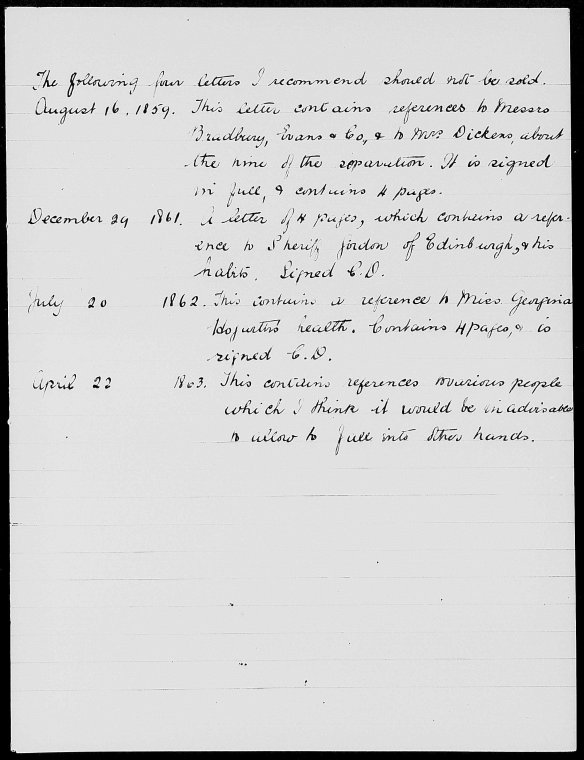 The following four letters I recommend should not be sold.
August 16, 1859. This letter contains references to Messrs
Bradbury, Evans & Co, & to Mrs Dickens, about
the time of the separation. It is signed
in full, & contains 4 pages.
December 29 1861. A letter of 4 pages, which contains a refer-
ence to Sheriff Gordon of Edinburgh, & his
habits. Signed C.D.
July 20 1862. This contains a reference to Miss Georgina
Hogarth's health. Contains 4 pages, & is
signed C.D.
April 22 1863. This contains references to various people
which I think it would be inadvisable
to allow to fall into other hands.